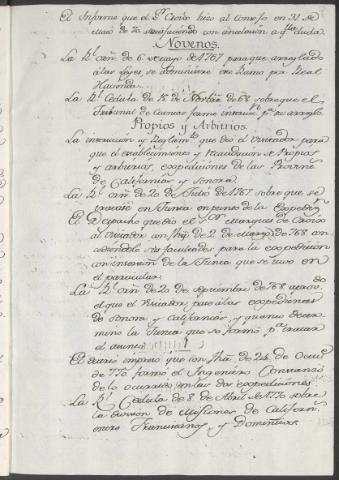 El Informe que el Sr. Croix hizo al Consejo en 31 de
Novenos.
La Rl. orñ. de 6 mayo de 1767 para que arreglado
à las Leyes, se administre ese Ramo por Real
Hacienda.
La Rl. Cedula de 15 de de 68 sobre que el
Tribunal de Cuentas forme pa. su arreglo
Propios y Arbitrios.
La instruccion y Reglamto. que dió el Visitador para
que el establecimiento y Recaudacion de Propios,
y arbitrios, expediciones de las Provins.
de Californias y Sonora.
La Rl. orñ. de 20 de Julio de 1767 sobre que se
tratase en Junta en punto de la Expedicn.
El Despacho que dió el Sor. Marques de Croix
al Visitador con fha. de 2 de Marzo de 768 con
cediendole sus facultades para la expedicion
con insercion de la Junta que se tuvo en
el particular.
La Rl. orñ. de 20 de Septiembre de 768 aprovdo.
el que el Visitador pase à las expediciones
de Sonora y Californias, y quanto deter
mino la Junta que se formó pa. tratar
el asunto.
El diario impreso que con fha. de 24 de Octue.
de 770 formó el Ingeniero Constanzó
de lo ocurrido en las dos expediciones
La Rl. Cedula de 8 de Abril de 1770 sobre
la division de Misiones de Californs.
entre Franciscanos, y Dominicos.